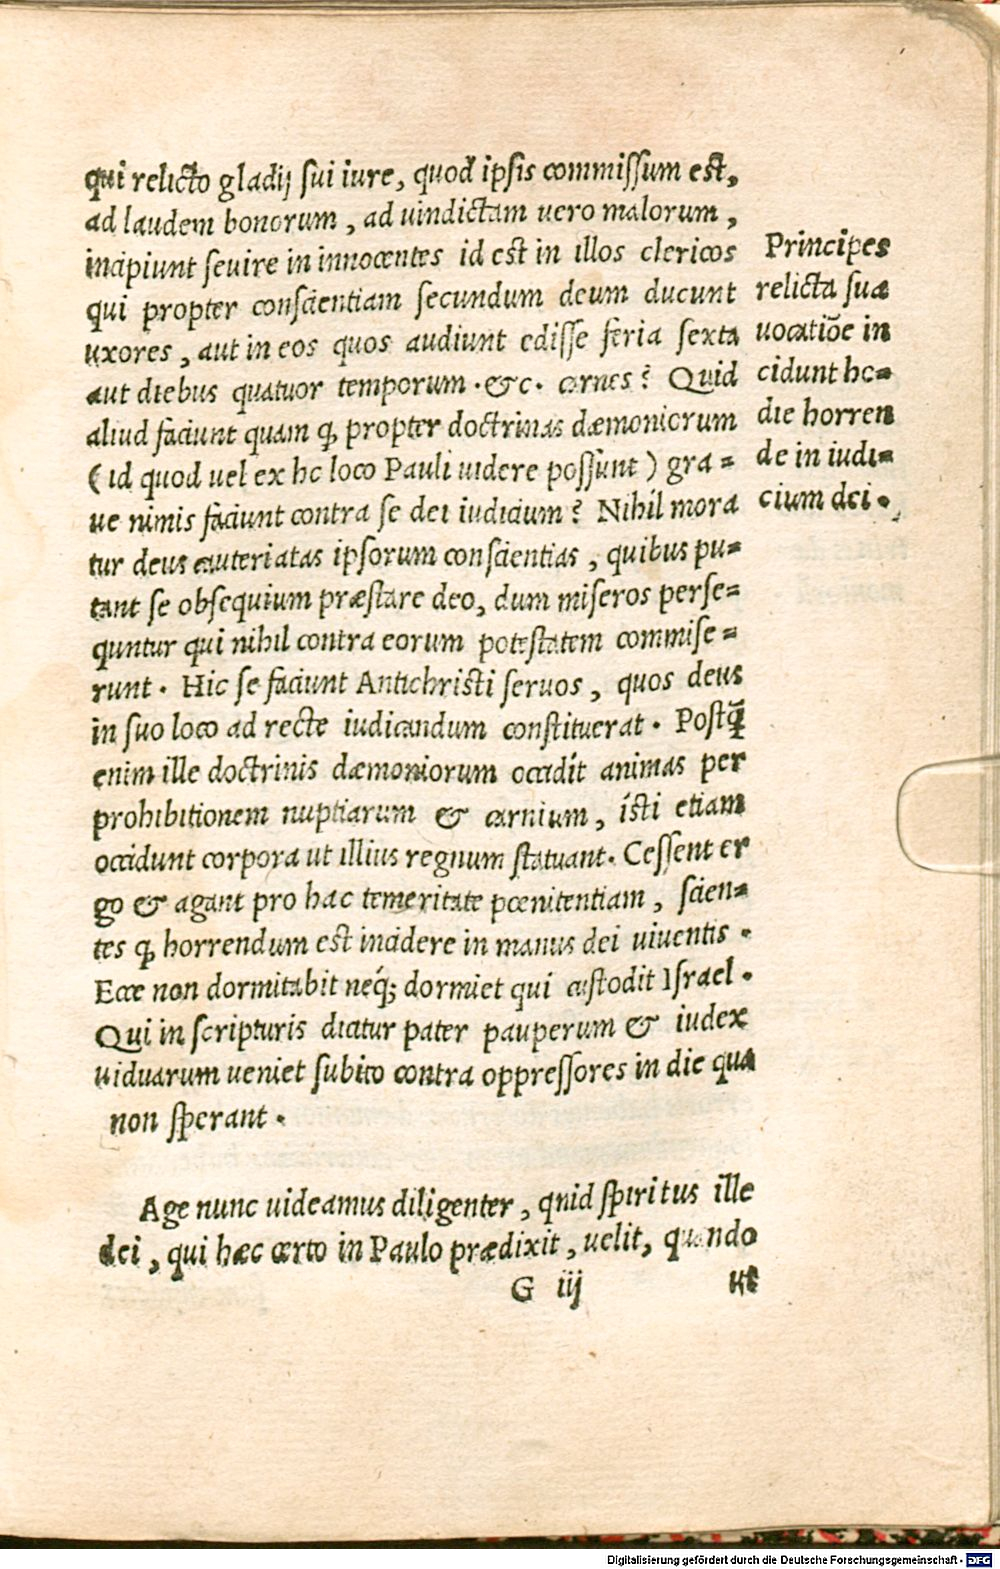 qui relicto gladij sui iure, quod ipsis commissum est,
ad laudem bonorum, ad uindictam uero malorum,
incipiunt seuire in innocentes id est in illos clericos
qui propter conscientiam secundum deum ducunt
uxores, aut in eos quos audiunt edisse feria sexta
aut diebus quatuor temporum. &c. carnes? Quid
aliud faciunt quam ꝙ propter doctrinas dæmoniorum
(id quod uel ex hc loco Pauli uidere possunt) gra=
ue nimis faciunt contra se dei iudicium? Nihil mora
tur deus cauteriatas ipsorum conscientias, quibus pu=
tant se obsequium præstare deo, dum miseros perse=
quntur qui nihil contra eorum potestatem commise=
runt. Hic se faciunt Antichristi seruos, quos deus
in suo loco ad recte iudicandum constituerat. Postq̃
enim ille doctrinis dæmoniorum occidit animas per
prohibitionem nuptiarum & carnium, isti etiam
occidunt corpora ut illius regnum statuant. Cessent er
go & agant pro hac temeritate pœnitentiam, scien=
tes ꝙ horrendum est incidere in manus dei uiuentis.
Ecce non dormitabit neq́; dormiet qui custodit Israel.
Qui in scripturis dicitur pater pauperum & iudex
uiduarum ueniet subito contra oppressores in die qua
non sperant.
Age nunc uideamus diligenter, qnid spiritus ille
dei, qui hæc certo in Paulo prædixit, uelit, quando
G iij
Principes
relicta suæ
uocatiõe in
cidunt hc=
die horren
de in iudi=
cium dei.
Digitalisierung gefördert durch die Deutsche Forschungsgemeinschaft - DFG